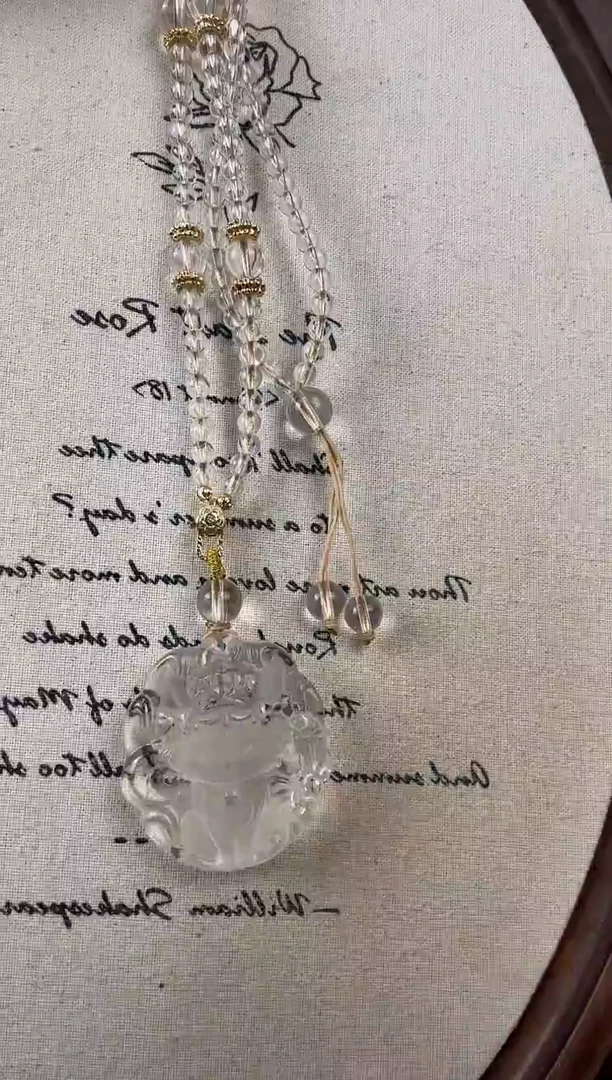 Rose
<18>
Shall I compare thee
to a summer's day?
Thou art more lovely and more tem
Rough winds do shake
of May
And summe all too sh
--
—William Shakespear